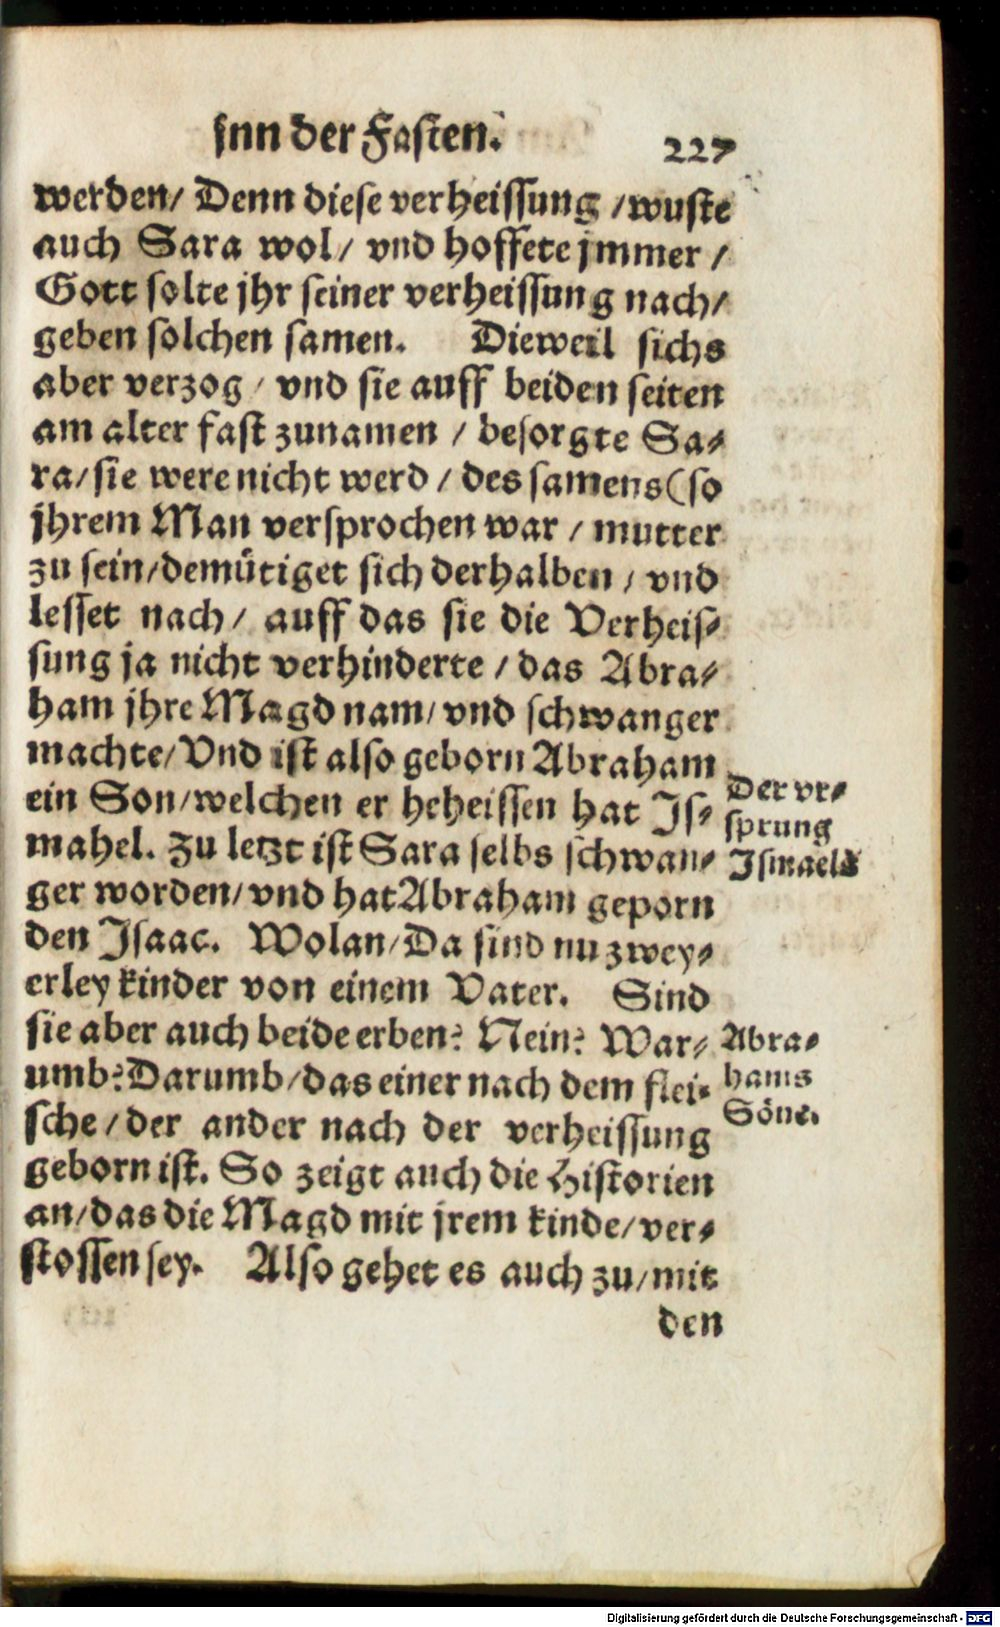 jnn der Fasten. 227
werden/ Denn diese verheissung /wuste
auch Sara wol/ vnd hoffete jmmer /
Gott solte jhr seiner verheissung nach/
geben solchen samen. Dieweil sichs
aber verzog / vnd sie auff beiden seiten
am alter fast zunamen / besorgte Sa⸗
ra/ sie were nicht werd / des samens (so
jhrem Man versprochen war / mutter
zu sein/demütiget sich derhalben / vnd
lesset nach/ auff das sie die Verheis⸗
sung ja nicht verhinderte / das Abra⸗
ham jhre Magd nam/ vnd schwanger
machte/ Vnd ist also geborn Abraham
ein Son/welchen er heheissen hat Is⸗
mahel. Zu letzt ist Sara selbs schwan⸗
ger worden/ vnd hat Abraham geporn
den Isaac. Wolan/ Da sind nu zwey⸗
erley kinder von einem Vater. Sind
sie aber auch beide erben? Nein? War⸗
umb? Darumb/das einer nach dem flei⸗
sche / der ander nach der verheissung
geborn ist. So zeigt auch die Historien
an/das die Magd mit jrem kinde/ ver⸗
stossen sey. Also gehet es auch zu/ mit
den
Der vr⸗
sprung
Ismaels
Abra⸗
hams
Söne.
Digitalisierung gefördert durch die Deutsche Forschungsgemeinschaft - DFG